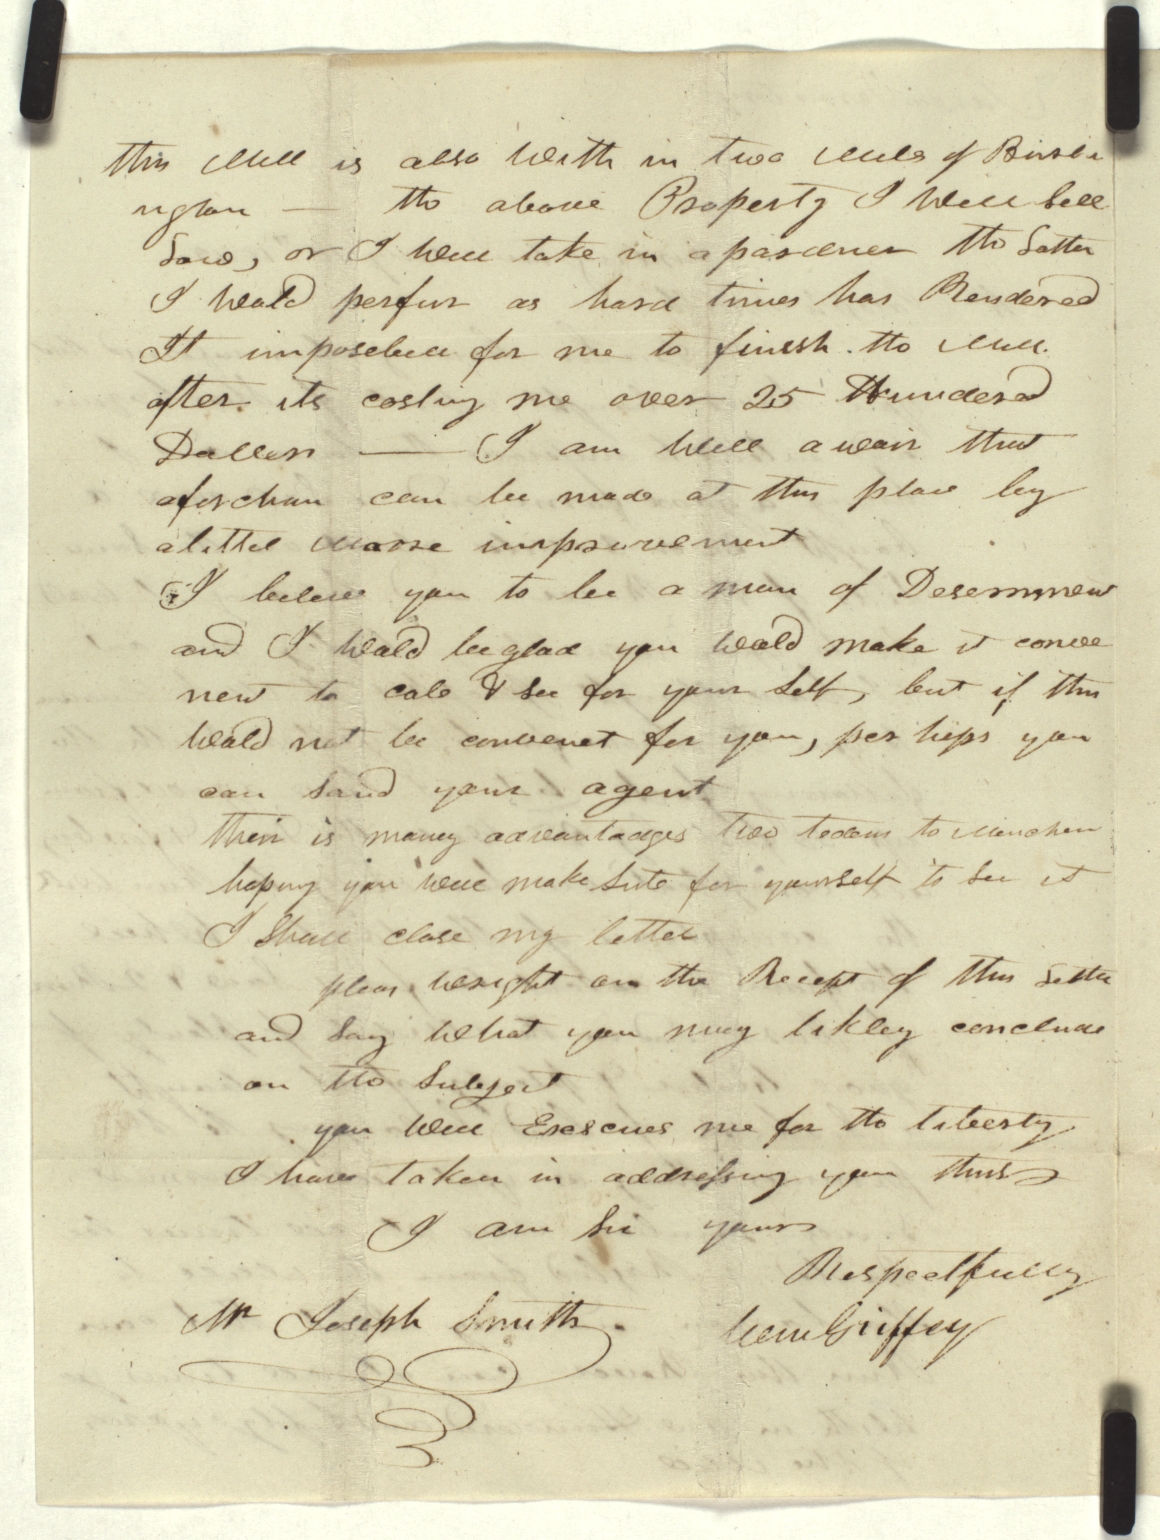 this Mill is also With in two Mile of Burli
ngton — tho above Property I Will Sell
Low, or I Will take in a pardener tho Latter
I Wold perfur as hard times has Rendered
It imposebell for me to finesh tho Mill
after its costing me over 25 Hundered
Dollers — I am Well awair that
aforchan can be made at this place by
a littel Morre improvement
I beleve you to be a man of Desernment
and I Wold be glad you Wold make it conve
nent to cale & See for your Self, but if this
Wold not be convenet for you, perhips you
can Sand your agent
thir is many advantadges two to
hoping you Will make Sute for yourself to See it
I Shall close my letter
pleas Wright on the Recept of this Letter
and Say What you may likley conclude
on tho Subject
you Will Exscues me for tho liberty
I have taken in addressing you thus
I am Sir yours
Respectfully
Wm Griffey
Mr Joseph Smith